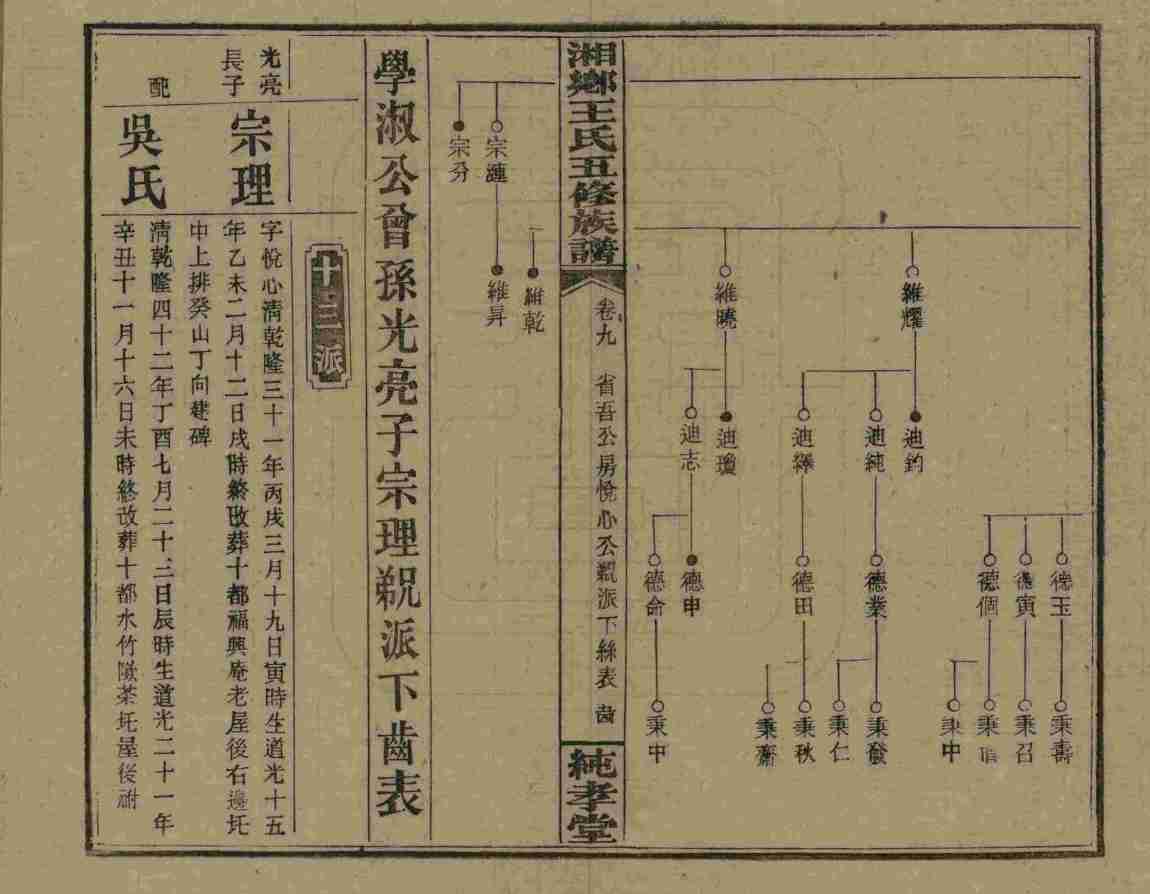 維耀
維曉
迪鈞
迪純
迪繹
迪瓊
迪志
德玉
德寅
德個
德業
德田
德申
德命
秉壽
秉召
秉
秉中
秉發
秉仁
秉秋
秉齋
秉中
湘鄉王氏五修族譜
卷九
省吾公房悅心公覡派下絲表 齒
純孝堂
宗漣
宗分
維乾
維昇
學淑公曾孫光亮子宗理覡派下齒表
十三派
光亮
長子
宗理
字悅心清乾隆三十一年丙戌三月十九日寅時生道光十五
年乙未二月十二日戌時終改葬十都福興庵老屋後右邊圫
中上排癸山丁向建碑
配
吳氏
清乾隆四十二年丁酉七月二十三日辰時生道光二十一年
辛丑十一月十六日未時終改葬十都水竹㘋茶圫屋後祔